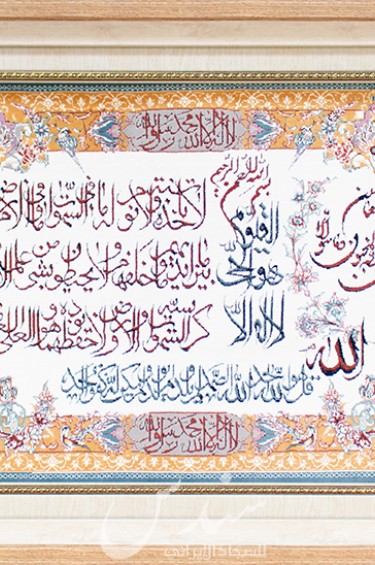 لا اله الا الله محمد رسول الله
بسم الله الرحمن الرحيم
الله
لا اله الا
هو الحي
القيوم
لا تأخذه سنة ولا نوم له ما في السموات وما في الارض
بين ايديهم وما خلفهم ولا يحيطون بشيء من علمه
كرسيه السموات والارض ولا يؤده حفظهما وهو العلي
قل هو الله احد الله الصمد لم يلد ولم يولد ولم يكن له كفوا احد
لا اله الا الله محمد رسول الله
سندس
للسجاد الإيراني